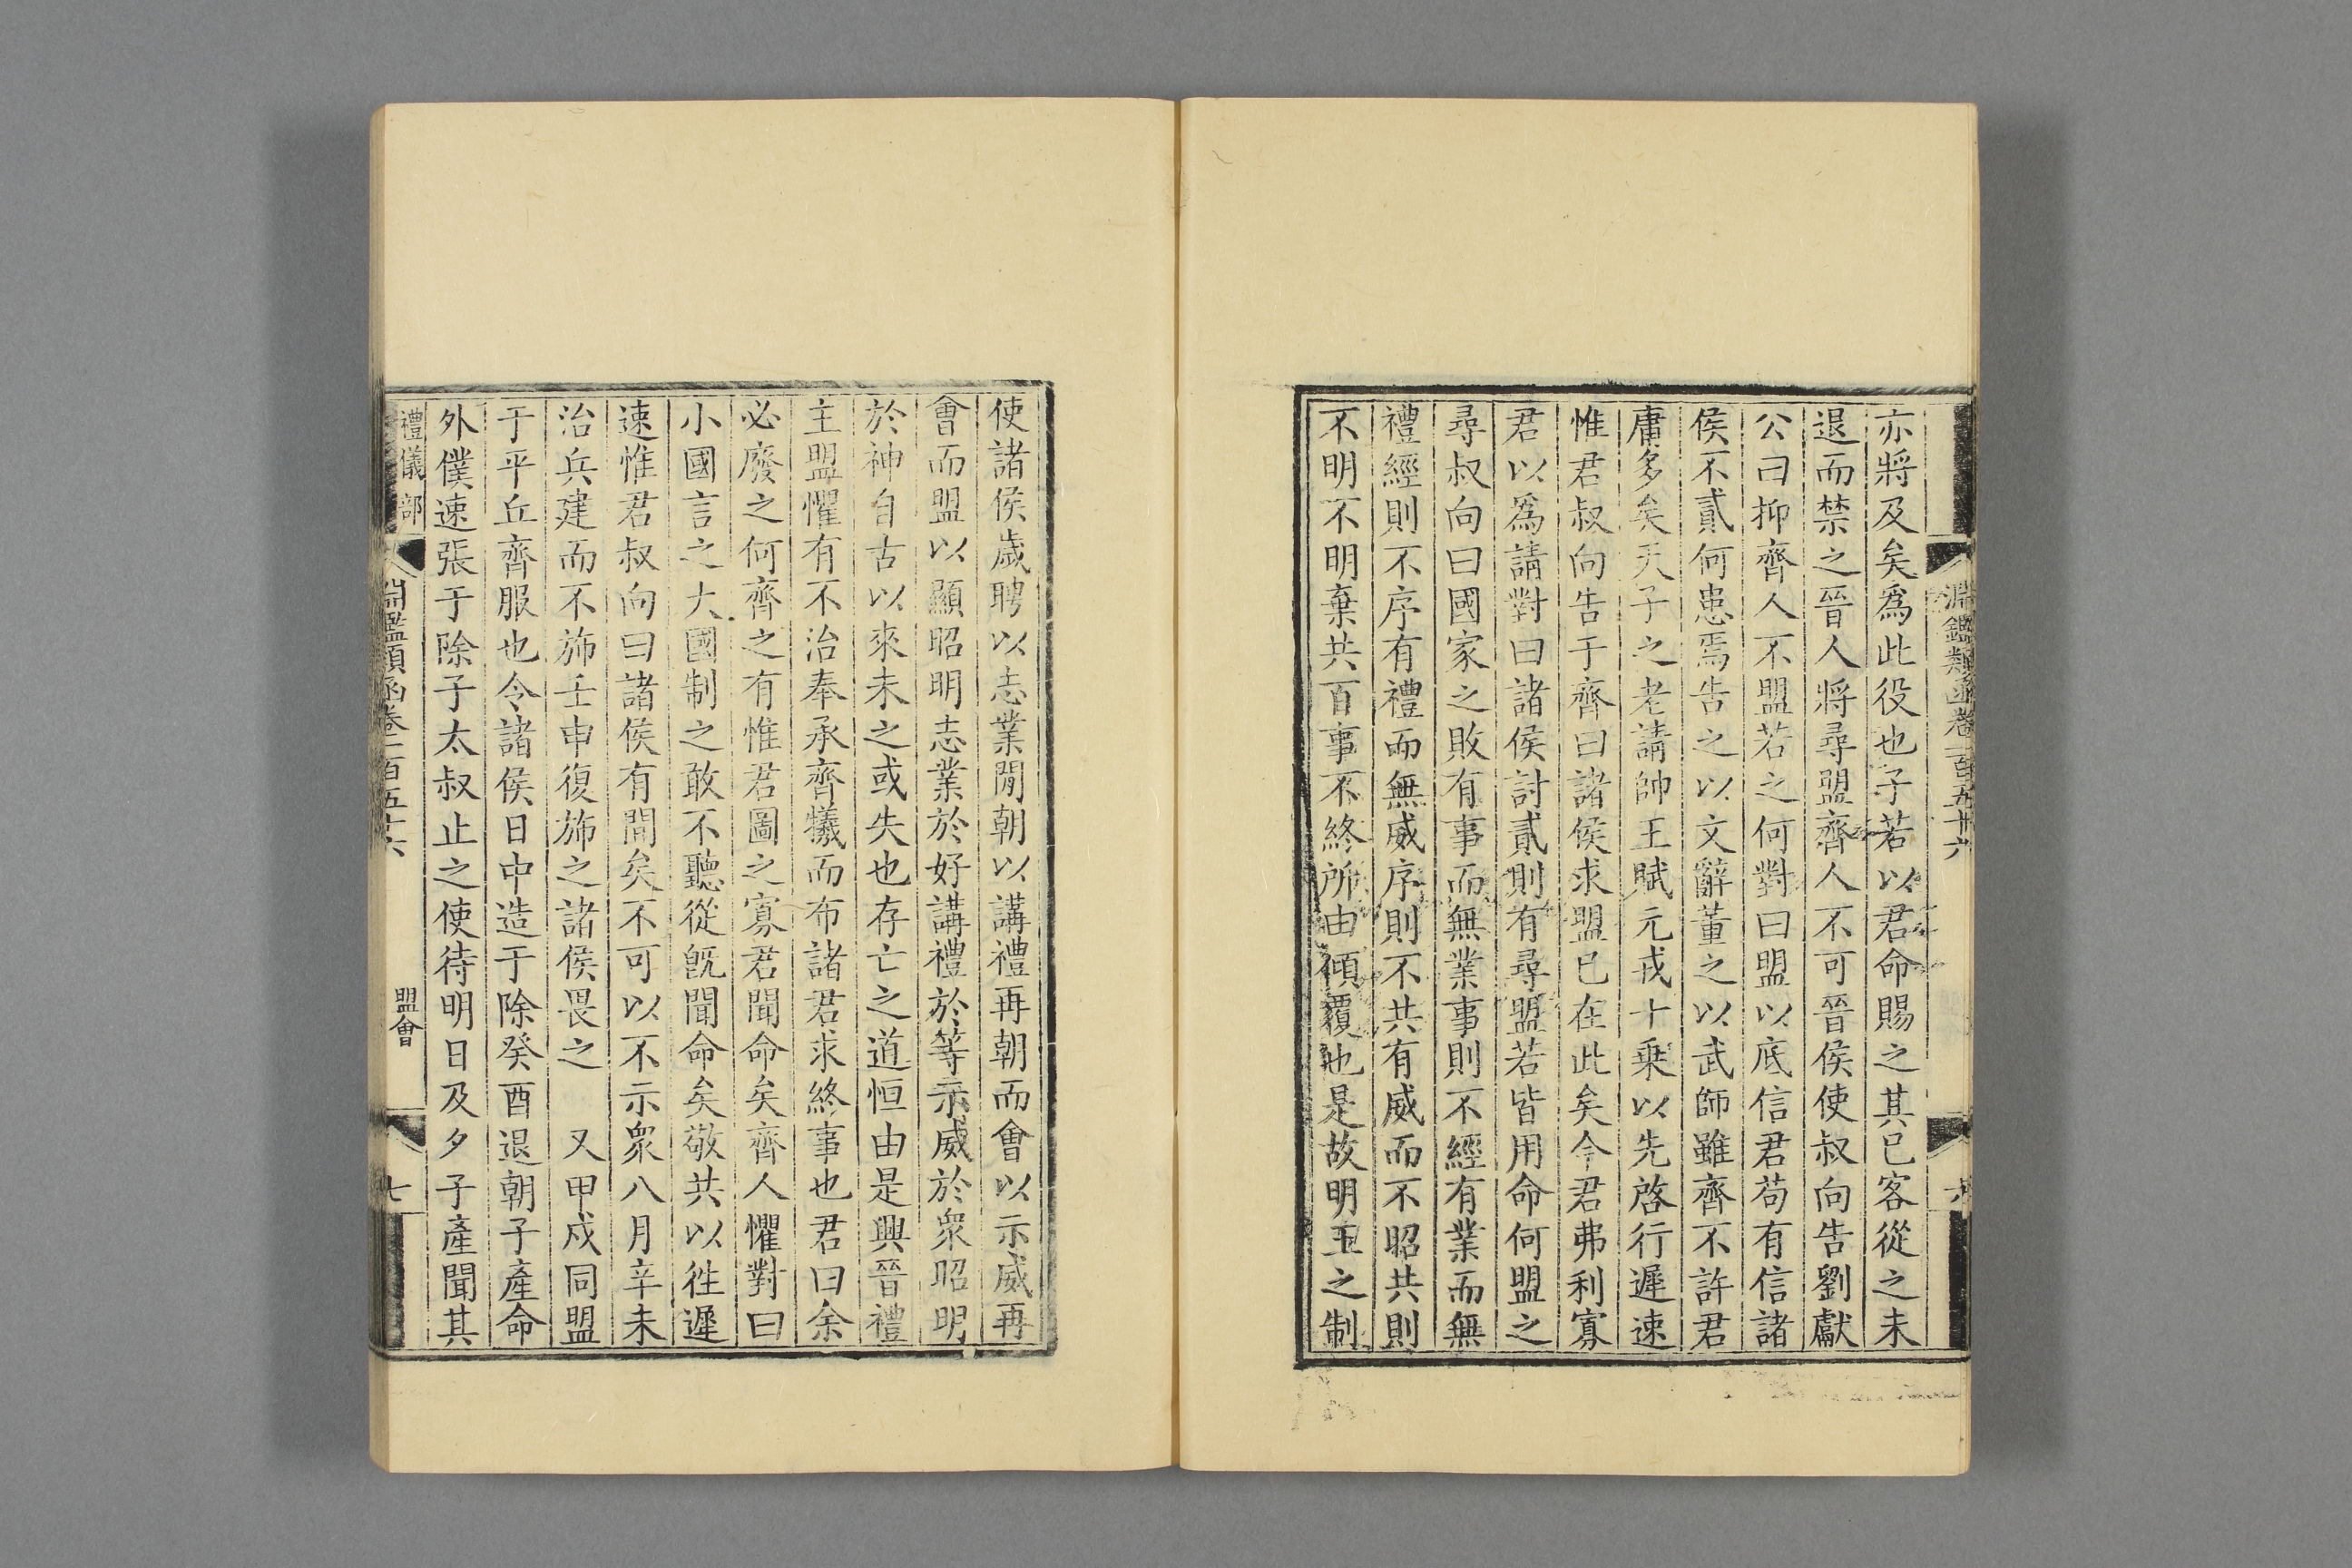 淵鑑類函卷一百五十六
亦將及矣爲此役也子若以君命賜之其已客從之未
退而禁之晉人將尋盟齊人不可晉侯使叔向告劉獻
公曰抑齊人不盟若之何對曰盟以底信君苟有信諸
侯不貳何患焉告之以文辭董之以武師雖齊不許君
庸多矣天子之老請帥王賦元戎十乗以先啓行遲速
惟君叔向告于齊曰諸侯求盟已在此矣今君弗利寡
君以爲請對曰諸侯討貳則有尋盟若皆用命何盟之
尋叔向曰國家之敗有事而無業事則不經有業而無
禮經則不序有禮而無威序則不共有威而不昭共則
不明不明棄共百事不終所由傾覆也是故明王之制
使諸侯歲聘以志業閒朝以講禮再朝而會以示威再
會而盟以顯昭明志業於好講禮於等示威於衆昭明
於神自古以來未之或失也存亡之道恒由是興晉禮
主盟懼有不治奉承齊犧而布諸君求終事也君曰余
必廢之何齊之有惟君圖之寡君聞命矣齊人懼對曰
小國言之大國制之敢不聽從旣聞命矣敬共以徃遲
速惟君叔向曰諸侯有間矣不可以不示衆八月辛未
治兵建而不斾壬申復斾之諸侯畏之　又甲戍同盟
于平丘齊服也令諸侯日中造于除癸酉退朝子產命
外僕速張于除子太叔止之使待明日及夕子產聞其
禮儀部
淵鑑類函卷一百五十六
盟會
七